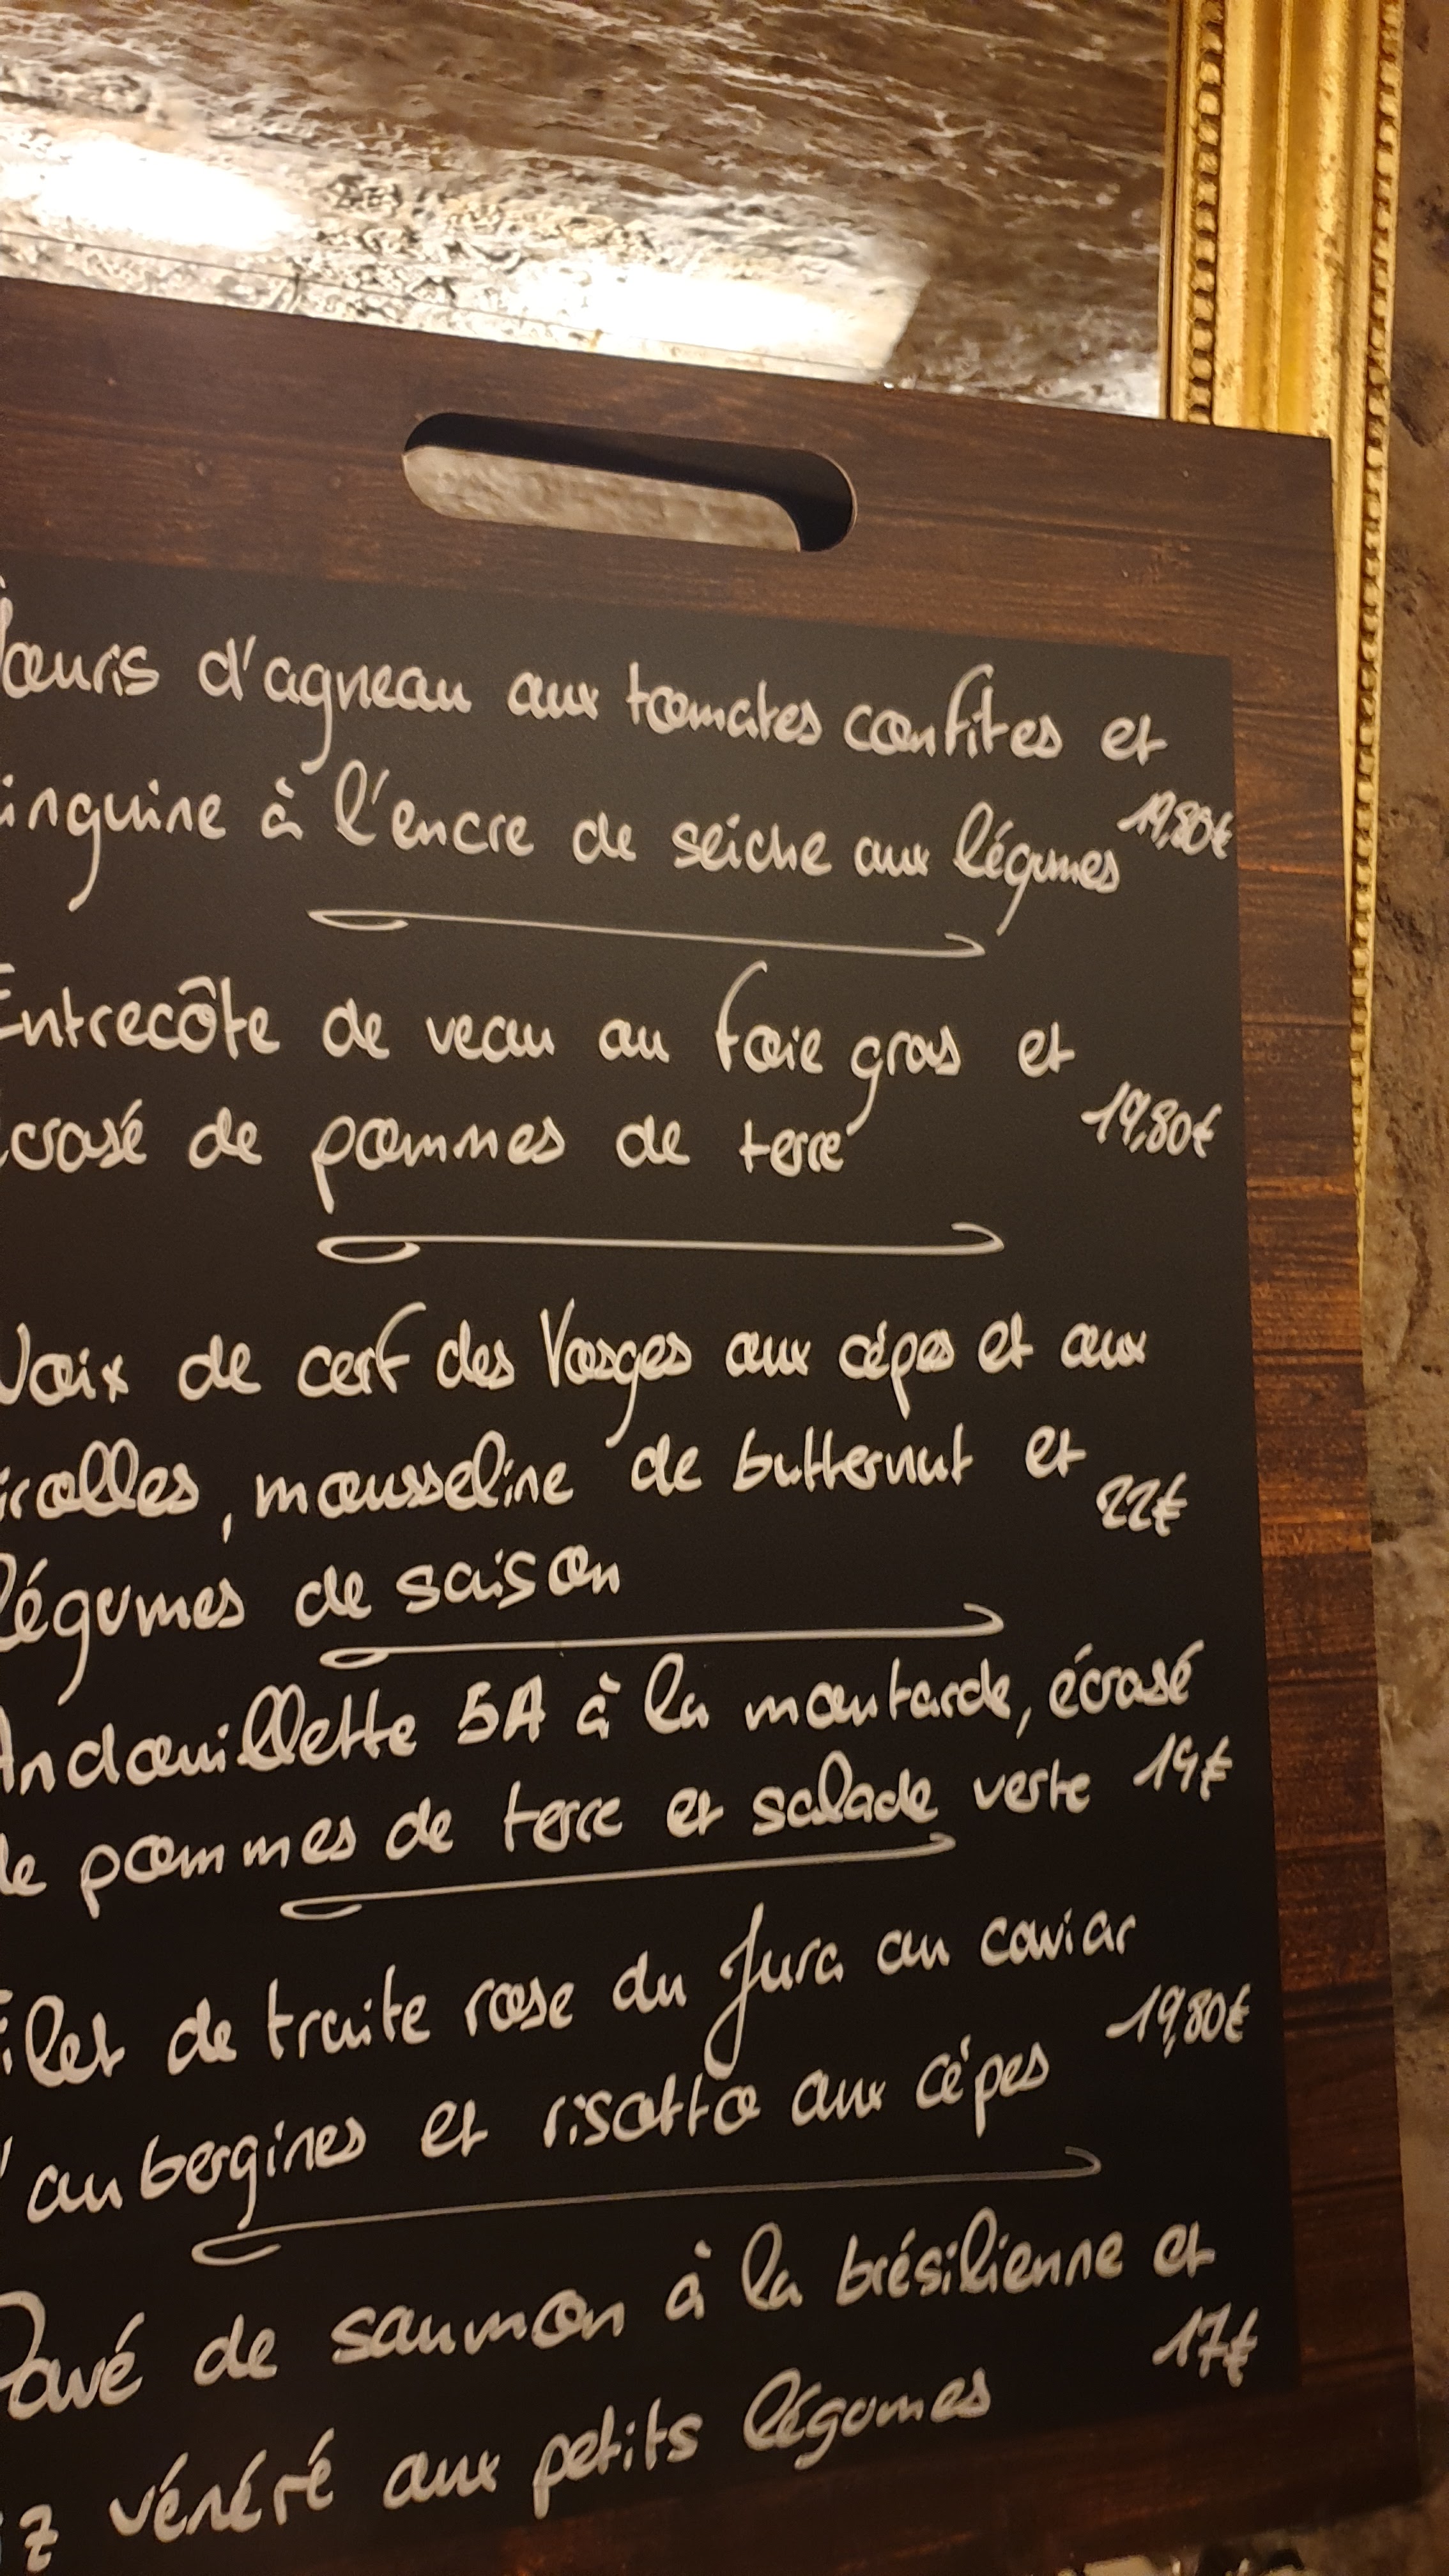 d'agneau aux tomates confites et
inguine à l'encre de seiche aux légumes 19,80€
Entrecôte de veau au foie gras et
crasé de pommes de terre 19,80€
Noix de cerf des Vosges aux cépes et aux
irolles, mousseline de butternut et 22€
légumes de saison
Andouillette 5A à la moutarde, écrasé
de pommes de terre et salade verte 19€
Filet de truite rose du Jura au caviar
'aubergines et risotto aux cépes 19,80€
Pavé de saumon à la brésilienne et
iz vénéré aux petits légumes 17€